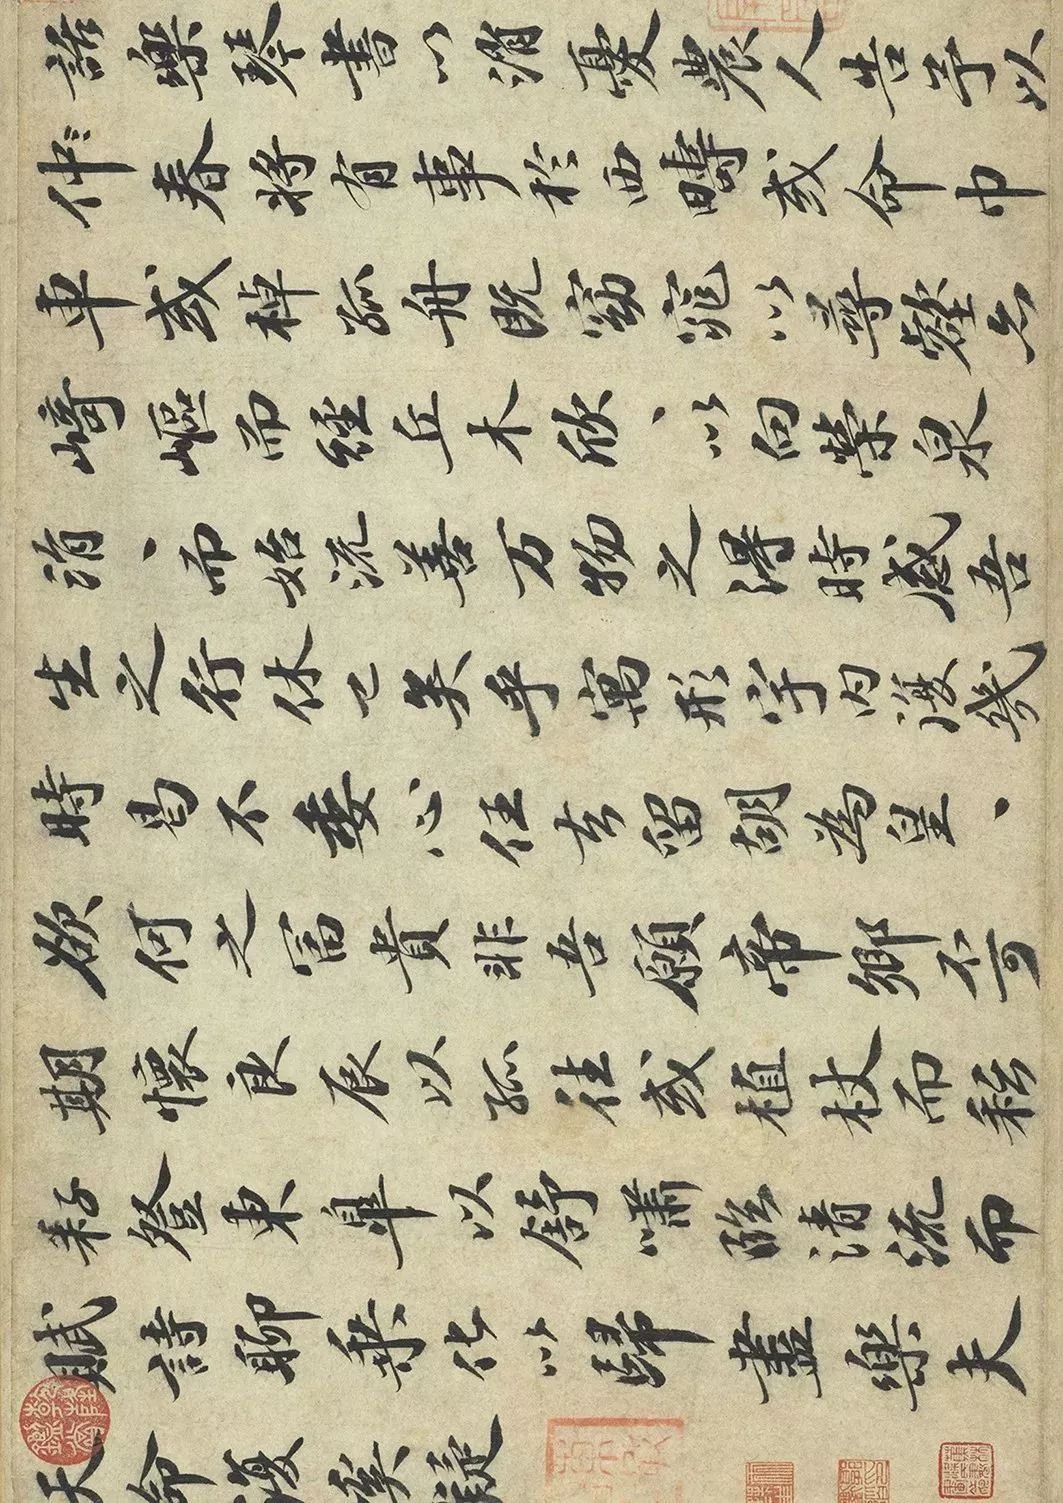 話樂琴書以消憂農人告予以
仲春將有事於西疇或命巾
車或棹孤舟既窈窕以尋壑亦
崎嶇而經丘木欣、以向榮泉
涓、而始流善万物之得時感吾
生之行休已矣乎寓形宇内復幾
時曷不委心任去留胡為皇、
欲何之富貴非吾願帝鄉不可
期懷良辰以孤往或植杖而耘
耔登東皋以舒嘯臨清流而
賦詩聊乘化以歸盡樂夫
天命復奚疑